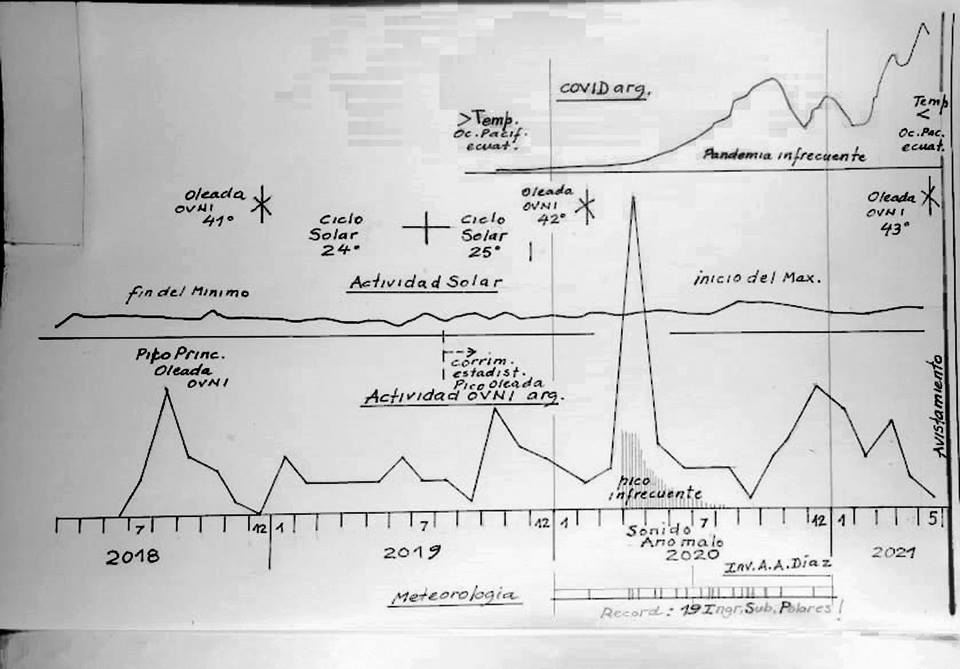 COVID arg.
>Temp.
Oc. Pacif.
ecuat.
Temp
<
Oc. Pac.
ecuat.
Pandemia infrecuente
Oleada
OVNI
41°
Ciclo
Solar
24°
Ciclo
Solar
25°
Oleada
OVNI
42°
Oleada
OVNI
43°
fin del Minimo
Actividad Solar
inicio del Max.
Pico Princ.
Oleada
OVNI
corrim.
estadist.
Pico Oleada
Actividad OVNI arg.
Avistamiento
pico
infrecuente
7
12
1
7
12
1
7
12
1
5
2018
2019
Sonido
Anomalo
2020
2021
Inv. A. A. Díaz
Meteorologia
Record: 19 Ingr. Sub. Polares!